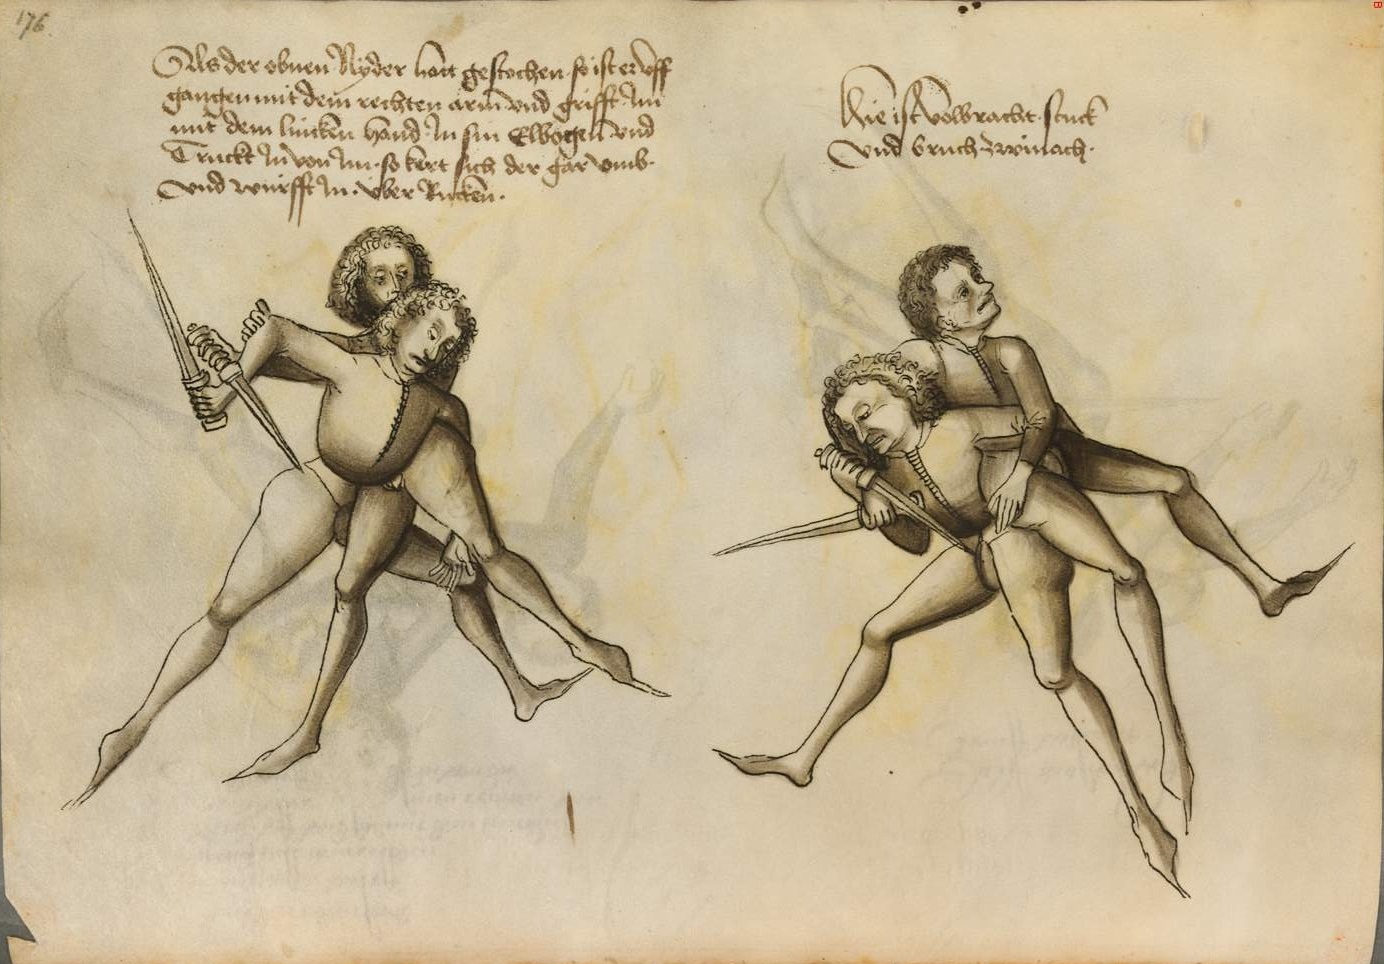 176.
Als der obnen Nyder hatt gestochen so ist er uff
gangen mit dem rechten arm und grifft Im
mit dem lincken hand In sin Elbogen und
Truckt In von Im so kert sich der gar umb
und wurfft In uber Rucken.
Hie ist volbracht stuck
und bruch zwinach.